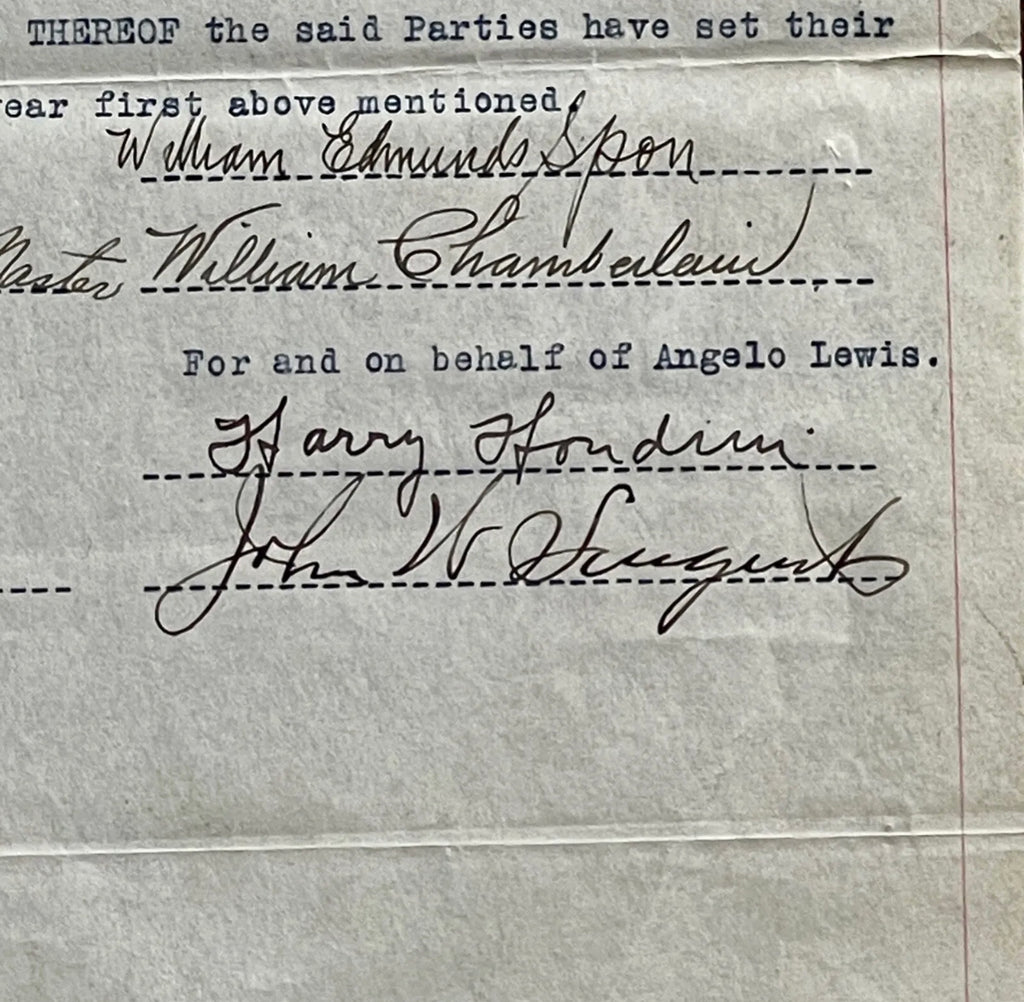 THEREOF the said Parties have set their
ear first above mentioned,
William Edmunds Spon
Master William Chamberlain
For and on behalf of Angelo Lewis.
Harry Houdini
John W Sargent